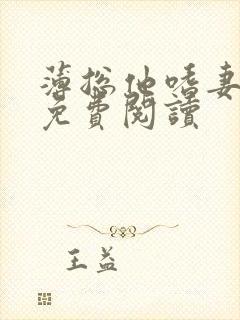 薄總他嗜妻
免費閱讀
王益